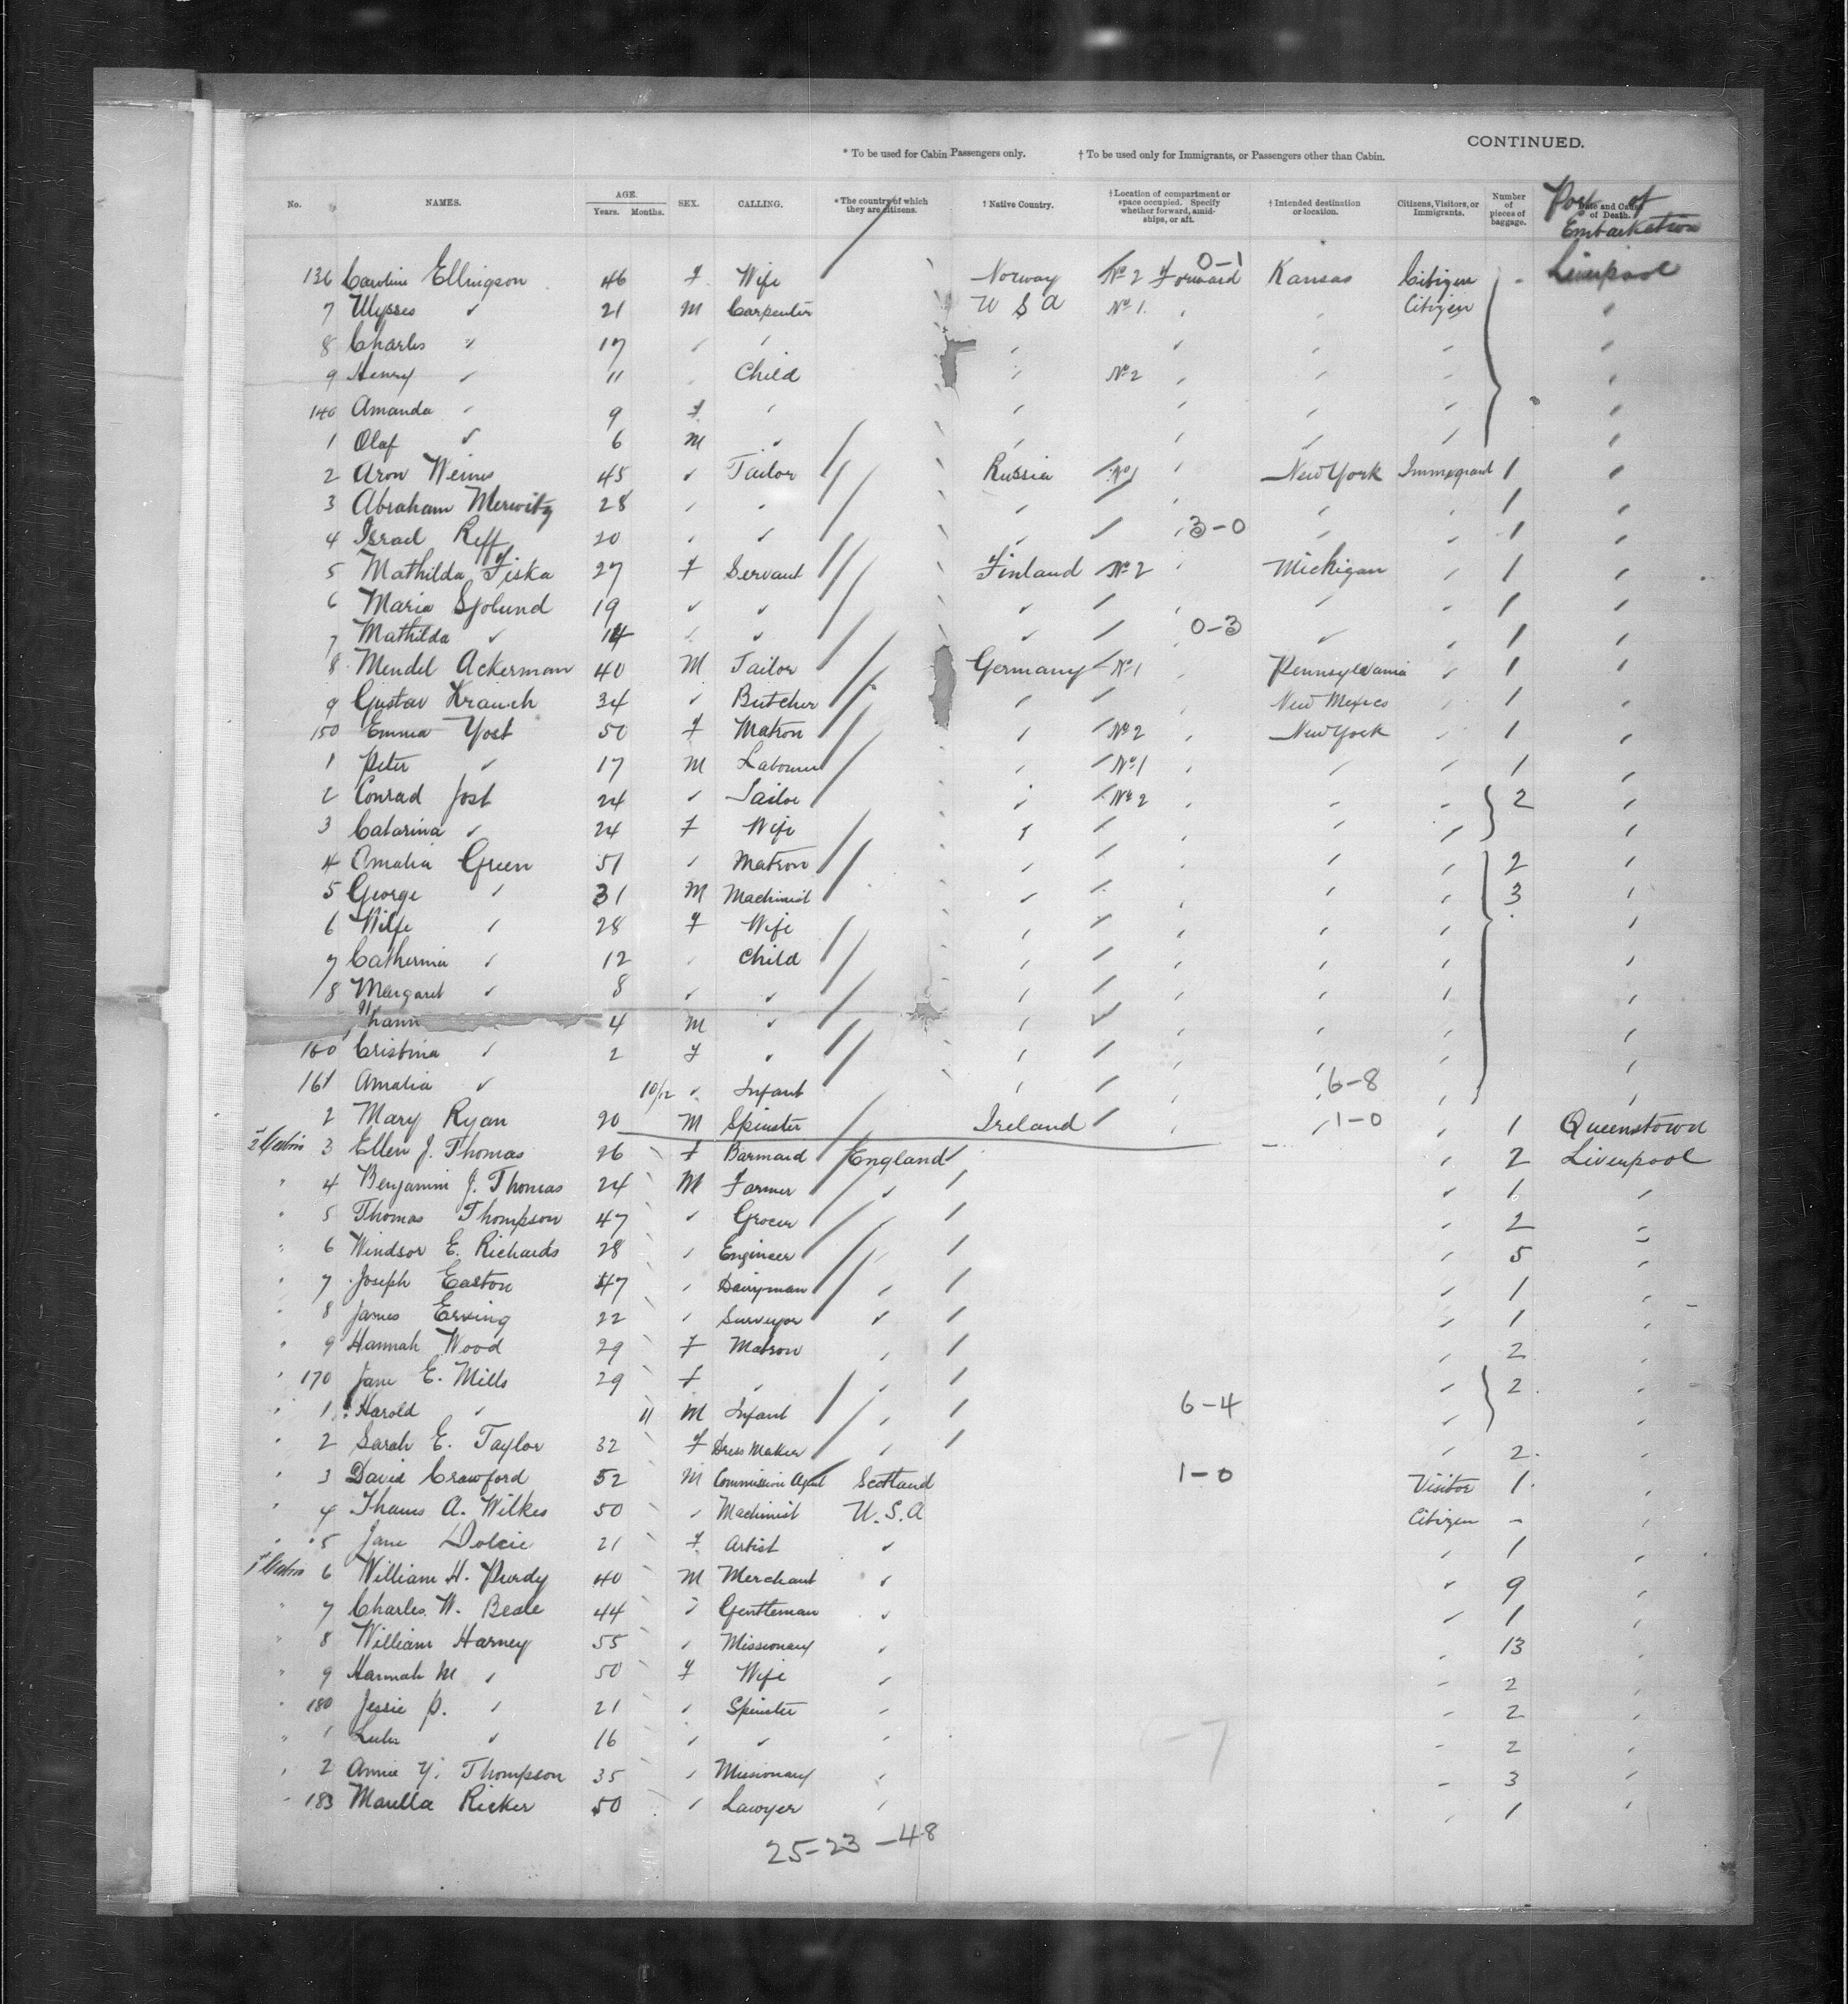 CONTINUED.
* To be used for Cabin Passengers only. † To be used only for Immigrants, or Passengers other than Cabin.
No. NAMES. AGE. Years. Months. SEX. CALLING. * The country of which they are citizens. † Native Country. † Location of compartment or space occupied. Specify whether forward, amid-ships, or aft. † Intended destination or location. Citizens, Visitors, or Immigrants. Number of pieces of baggage. Date and Cause of Death. Port of Embarkation
0-1
136 Caroline Ellingson 46 F Wife Norway No 2 Forward Kansas Citizen - Liverpool
7 Ulysses " 21 M Carpenter U S A No 1 " " Citizen "
8 Charles " 17 " " " " " " "
9 Henry " 11 " Child " No 2 " " " "
140 Amanda " 9 F " " " " " "
1 Olaf " 6 M " " " " " "
2 Aron Weines 45 " Tailor Russia No 1 " New York Immigrant 1 "
3 Abraham Merwitz 28 " " " " " " 1 "
4 Israel Reff 20 " " " " " 3-0 " " 1 "
5 Mathilda Fiska 27 F Servant Finland No 2 " Michigan " 1 "
6 Maria Sjolund 19 " " " " " " " 1 "
7 Mathilda " 14 " " " " 0-3 " " 1 "
8 Mendel Ackerman 40 M Tailor Germany No 1 " Pennsylvania " 1 "
9 Gustav Krauch 34 " Butcher " " New Mexico " 1 "
150 Emma Yost 50 F Matron " No 2 " New York " 1 "
1 Peter " 17 M Labourer " No 1 " " " 1 "
2 Conrad Jost 24 " Tailor " No 2 " " " 2 "
3 Catarina " 24 F Wife " " " " " "
4 Amalia Green 51 " Matron " " " " " 2 "
5 George " 31 M Machinist " " " " " 3 "
6 Wife " 28 F Wife " " " " " "
7 Catherina " 12 " Child " " " " " "
8 Margaret " 8 " " " " " " "
4 M " " " " " " "
160 Cristina " 2 F " " " " " " "
161 Amalia " 10/12 " Infant " " " 6-8 " "
2 Mary Ryan 20 M Spinster Ireland " " " 1-0 " 1 Queenstown
2nd Cabin 3 Ellen J. Thomas 26 F Barmaid England " 2 Liverpool
" 4 Benjamin J. Thomas 24 M Farmer " " 1 "
" 5 Thomas Thompson 47 " Grocer " " 2 "
" 6 Windsor E. Richards 28 " Engineer " " 5 "
" 7 Joseph Easton 47 " Dairyman " " 1 "
" 8 James Erving 22 " Surveyor " " 1 "
" 9 Hannah Wood 29 F Matron " " 2 "
" 170 Jane E. Mills 29 F " " " 2 "
" 1 Harold " 11 M Infant " 6-4 " "
" 2 Sarah E. Taylor 32 F Dress Maker " " 2 "
" 3 David Crawford 52 M Commission Agent Scotland 1-0 Visitor 1 "
" 4 Thomas A. Wilkes 50 " Machinist U.S.A Citizen - "
" 5 Jane Dolcie 21 F Artist " " 1 "
1st Cabin 6 William H. Purdy 40 M Merchant " " 9 "
" 7 Charles W. Beale 44 " Gentleman " " 1 "
" 8 William Harney 55 " Missionary " " 13 "
" 9 Hannah M " 50 F Wife " " 2 "
" 180 Jessie P. " 21 " Spinster " " 2 "
" 1 Lulu " 16 " " " " 2 "
" 2 Annie Y. Thompson 35 " Missionary " " 3 "
" 183 Marilla Ricker 50 " Lawyer " " 1 "
25-23-48